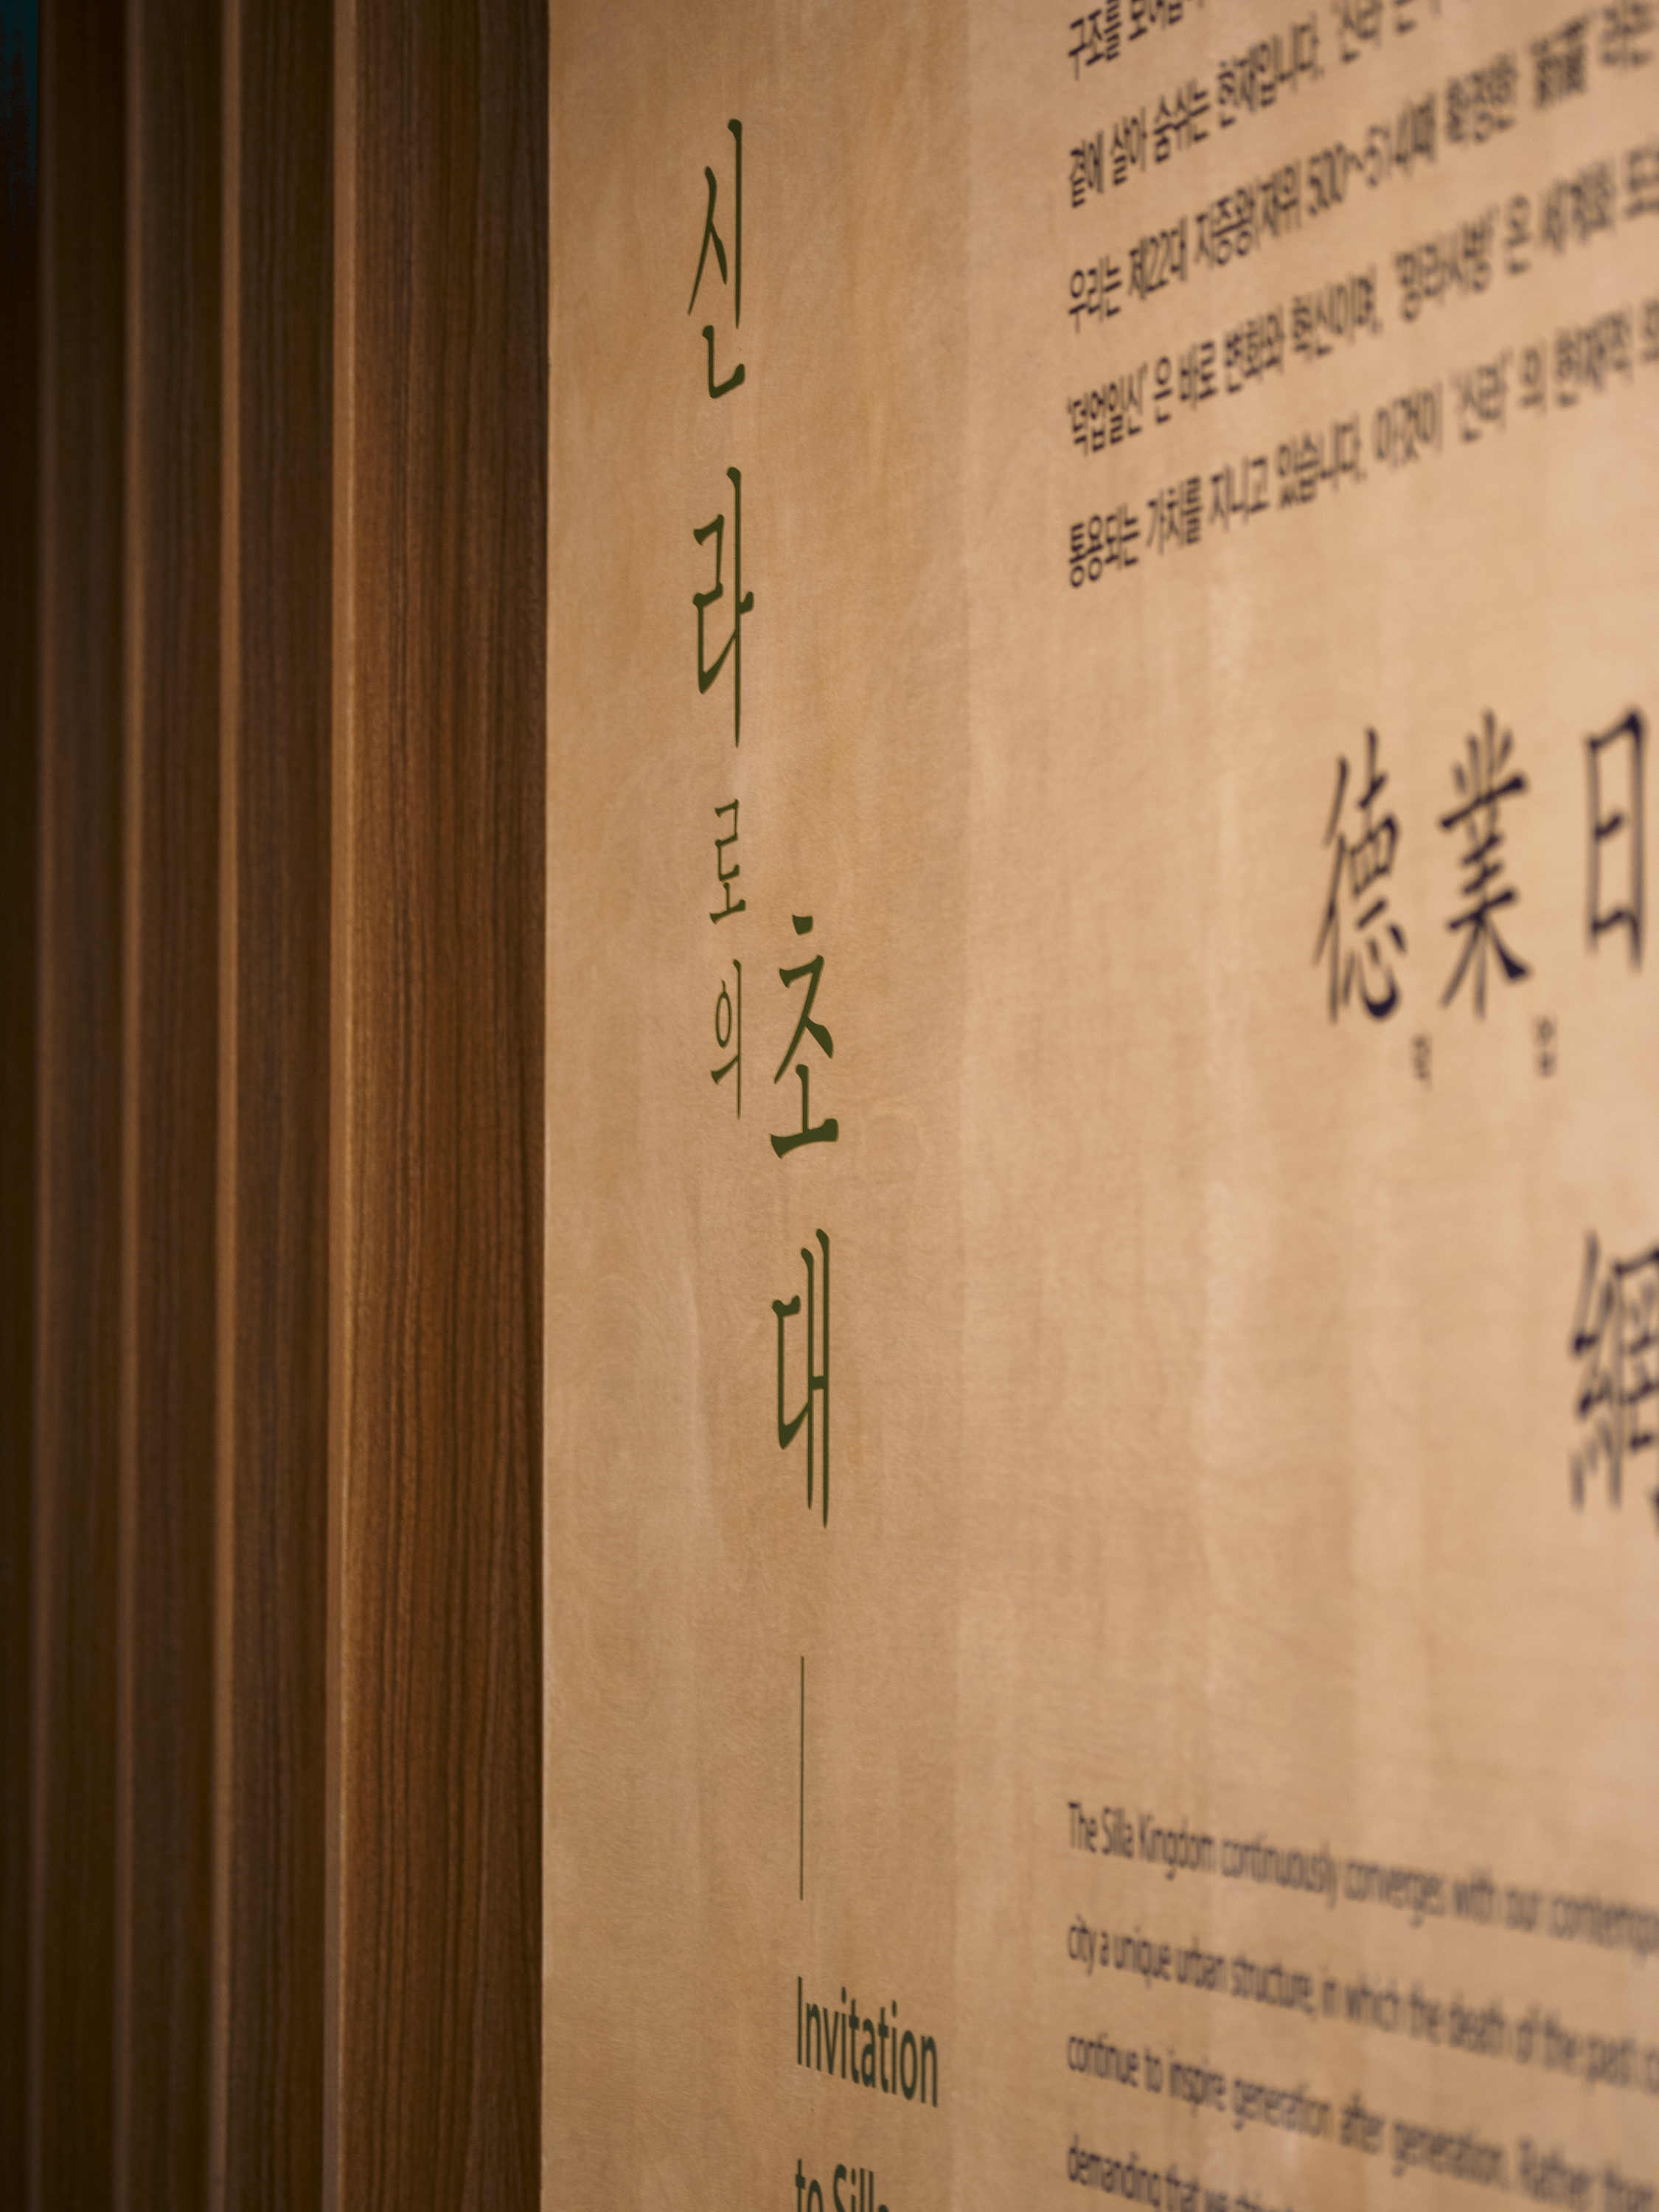 신라로의
초대
Invitation
to Silla
구조를
곁에 살아 숨쉬는 현재입니다. '신라'
우리는 제22대 지증왕(재위 500~514)때 확정한 '新羅' 라는
'덕업일신' 은 바로 변화와 혁신이며, '망라사방' 은 세계화
통용되는 가치를 지니고 있습니다. 이것이 '신라' 의 현재적
德業日
덕 업
網
The Silla Kingdom continuously converges with our
city a unique urban structure, in which the death of the past
continue to inspire generation after generation. Rather than
demanding that we